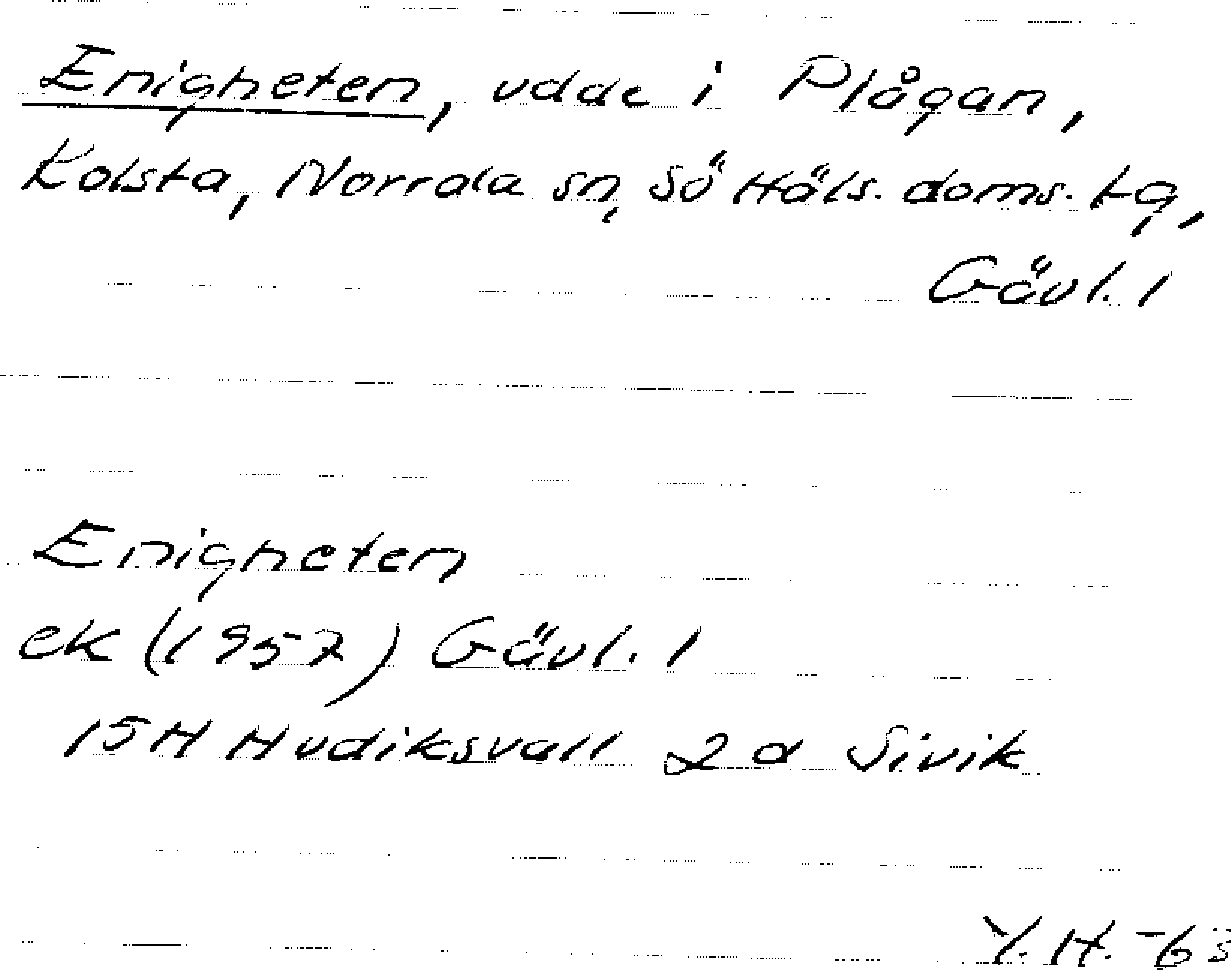 Enigheten, udde i Plågan,
Kolsta, Norrala sn, Sö Häls. doms. tg,
Gävl. l
Enigheten
ek (1957) Gävl. l
15H Hudiksvall 2 d Sivik
Y. H. -63